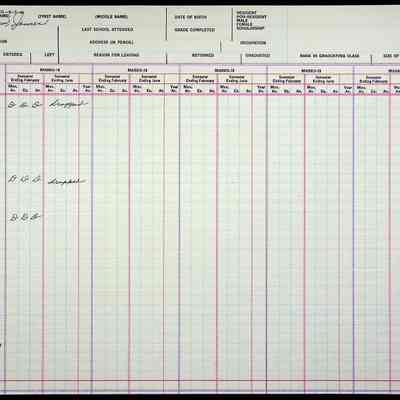 (FIRST NAME) (MIDDLE NAME) DATE OF BIRTH RESIDENT
NON-RESIDENT
MALE
FEMALE
SCHOLARSHIP
LAST SCHOOL ATTENDED GRADE COMPLETED
ADDRESS (IN PENCIL) OCCUPATION
ENTERED LEFT REASON FOR LEAVING RETURNED GRADUATED RANK IN GRADUATING CLASS SIZE OF
MARKS-19 MARKS-19 MARKS-19 MARKS-19
Semester Ending February Semester Ending June Semester Ending February Semester Ending June Semester Ending February Semester Ending June Semester Ending February Semester Ending June Semester Ending February
Mos. Av. Ex. Av. Mos. Av. Ex. Av. Year Av. Mos. Av. Ex. Av. Mos. Av. Ex. Av. Year Av. Mos. Av. Ex. Av. Mos. Av. Ex. Av. Year Av. Mos. Av. Ex. Av. Mos. Av. Ex. Av. Year Av. Mos. Av. Ex. Av.
D D D Dropped
D D D Dropped
D D D